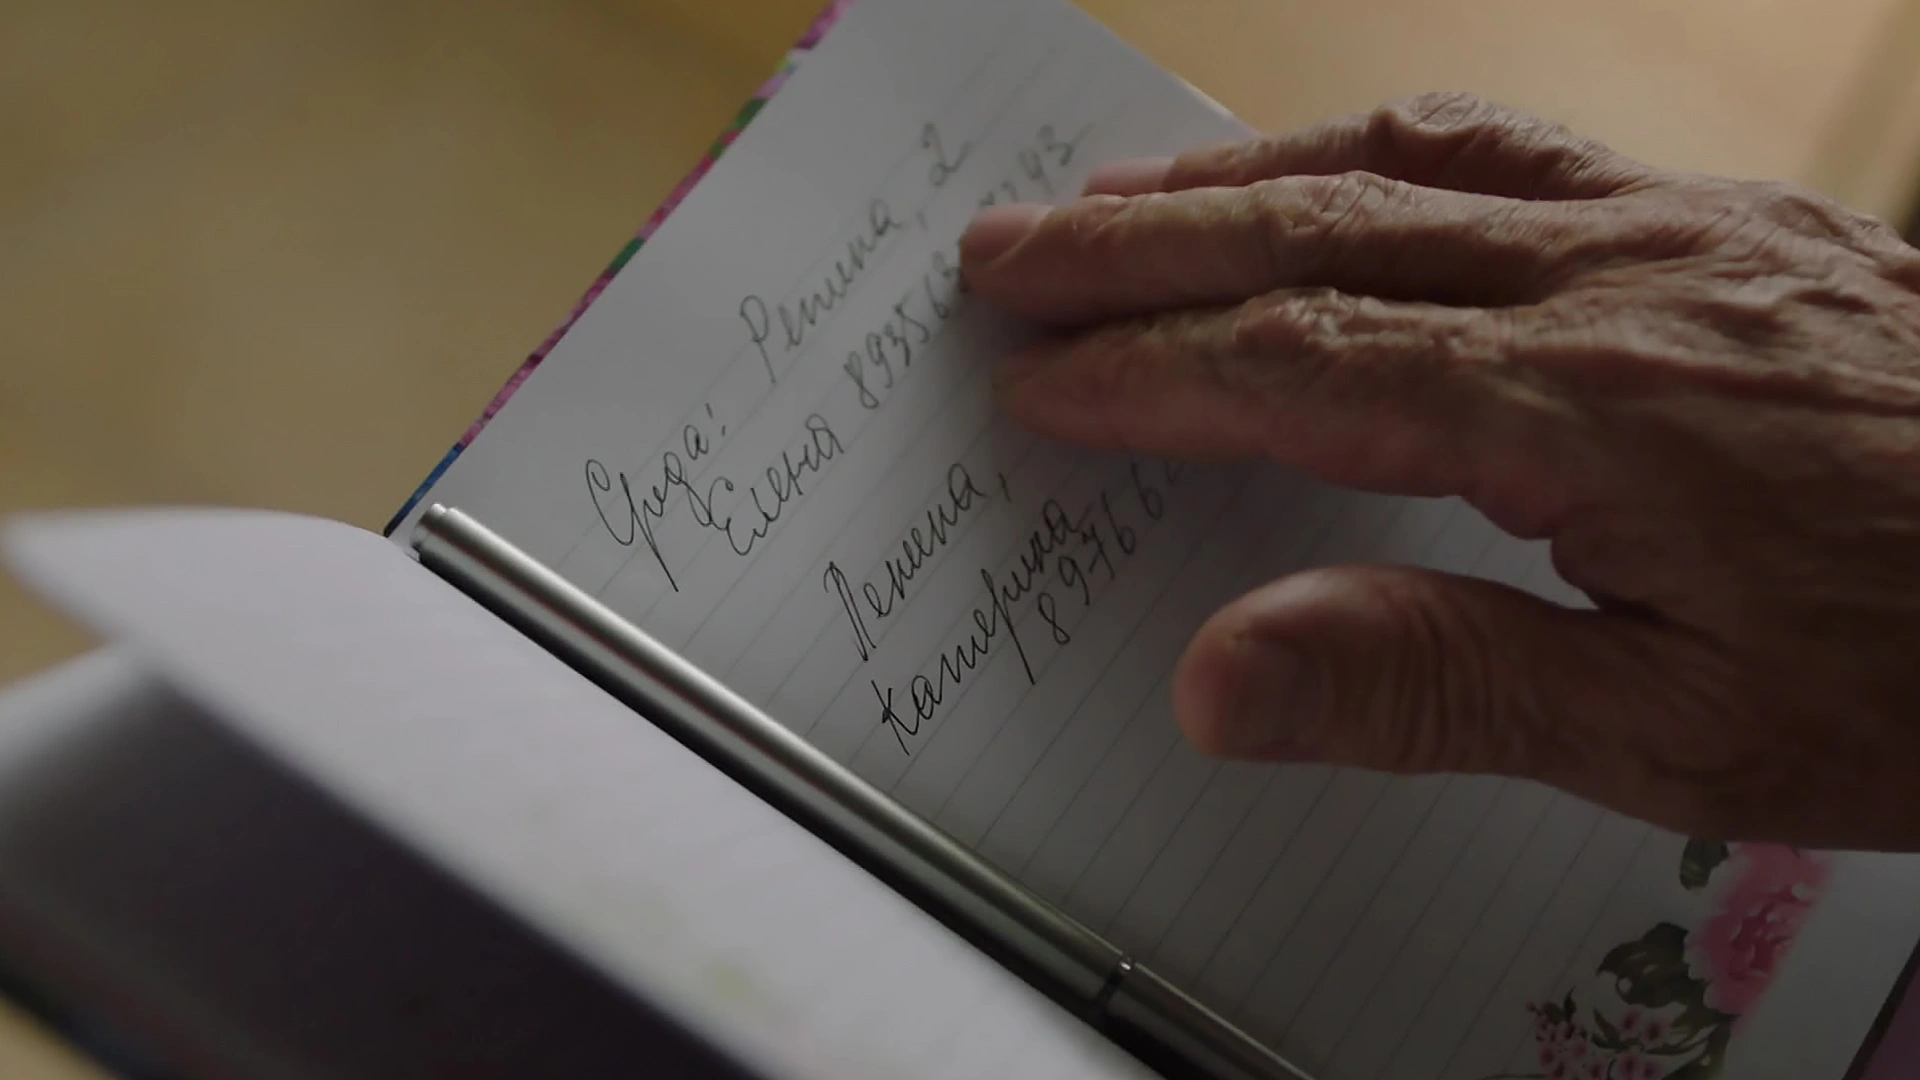 Среда! Репина, 2
Елена 893563 93
Ленина,
Катерина
89766